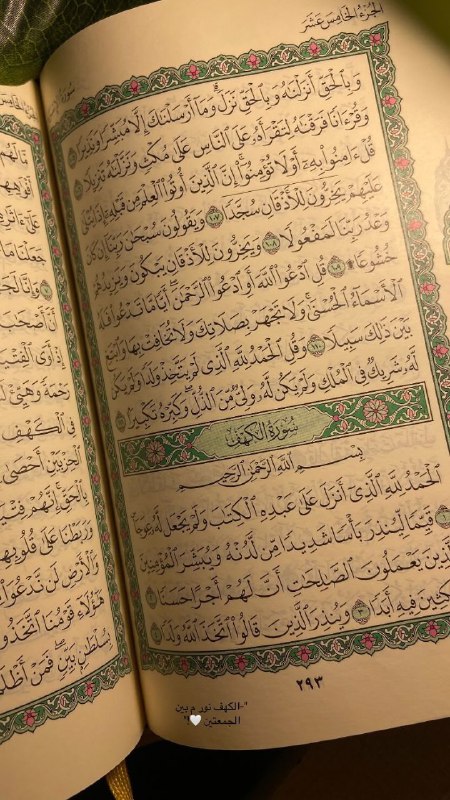 الجزء الخامس عشر
سورة
وَبِٱلْحَقِّ أَنزَلْنَٰهُ وَبِٱلْحَقِّ نَزَلَۗ وَمَآ أَرْسَلْنَٰكَ إِلَّا مُبَشِّرًا وَنَذِيرًا ١٠٥
وَقُرْءَانًا فَرَقْنَٰهُ لِتَقْرَأَهُۥ عَلَى ٱلنَّاسِ عَلَىٰ مُكْثٍ وَنَزَّلْنَٰهُ تَنزِيلًا ١٠٦
قُلْ ءَامِنُوا۟ بِهِۦٓ أَوْ لَا تُؤْمِنُوٓا۟ۚ إِنَّ ٱلَّذِينَ أُوتُوا۟ ٱلْعِلْمَ مِن قَبْلِهِۦٓ إِذَا يُتْلَىٰ
عَلَيْهِمْ يَخِرُّونَ لِلْأَذْقَانِ سُجَّدًا ١٠٧ وَيَقُولُونَ سُبْحَٰنَ رَبِّنَآ إِن كَانَ
وَعْدُ رَبِّنَا لَمَفْعُولًا ١٠٨ وَيَخِرُّونَ لِلْأَذْقَانِ يَبْكُونَ وَيَزِيدُهُمْ
خُشُوعًا ۩ ١٠٩ قُلِ ٱدْعُوا۟ ٱللَّهَ أَوِ ٱدْعُوا۟ ٱلرَّحْمَٰنَۖ أَيًّا مَّا تَدْعُوا۟ فَلَهُ
ٱلْأَسْمَآءُ ٱلْحُسْنَىٰۚ وَلَا تَجْهَرْ بِصَلَاتِكَ وَلَا تُخَافِتْ بِهَا وَٱبْتَغِ
بَيْنَ ذَٰلِكَ سَبِيلًا ١١٠ وَقُلِ ٱلْحَمْدُ لِلَّهِ ٱلَّذِى لَمْ يَتَّخِذْ وَلَدًا وَلَمْ يَكُن
لَّهُۥ شَرِيكٌ فِى ٱلْمُلْكِ وَلَمْ يَكُن لَّهُۥ وَلِىٌّ مِّنَ ٱلذُّلِّۖ وَكَبِّرْهُ تَكْبِيرًۢا ١١١
سُورَةُ الكَهْفِ
بِسْمِ ٱللَّهِ ٱلرَّحْمَٰنِ ٱلرَّحِيمِ
ٱلْحَمْدُ لِلَّهِ ٱلَّذِىٓ أَنزَلَ عَلَىٰ عَبْدِهِ ٱلْكِتَٰبَ وَلَمْ يَجْعَل لَّهُۥ عِوَجَاۜ ١
قَيِّمًا لِّيُنذِرَ بَأْسًا شَدِيدًا مِّن لَّدُنْهُ وَيُبَشِّرَ ٱلْمُؤْمِنِينَ
ٱلَّذِينَ يَعْمَلُونَ ٱلصَّٰلِحَٰتِ أَنَّ لَهُمْ أَجْرًا حَسَنًا ٢
مَّٰكِثِينَ فِيهِ أَبَدًا ٣ وَيُنذِرَ ٱلَّذِينَ قَالُوا۟ ٱتَّخَذَ ٱللَّهُ وَلَدًا ٤
٢٩٣
"-الكهف نور م بين
الجمعتين 🤍!"
جَعَلْنَا مَا
وَإِنَّا
أَنَّ أَصْحَٰبَ
إِذْ أَوَى
رَحْمَةً وَهَيِّئْ
فِى ٱلْكَهْفِ
ٱلْحِزْبَيْنِ أَحْصَىٰ
بِٱلْحَقِّۚ إِنَّهُمْ
وَرَبَطْنَا عَلَىٰ
وَٱلْأَرْضِ لَن نَّدْعُوَا۟
هَٰٓؤُلَآءِ قَوْمُنَا
بِسُلْطَٰنٍۭ بَيِّنٍۖ فَمَنْ